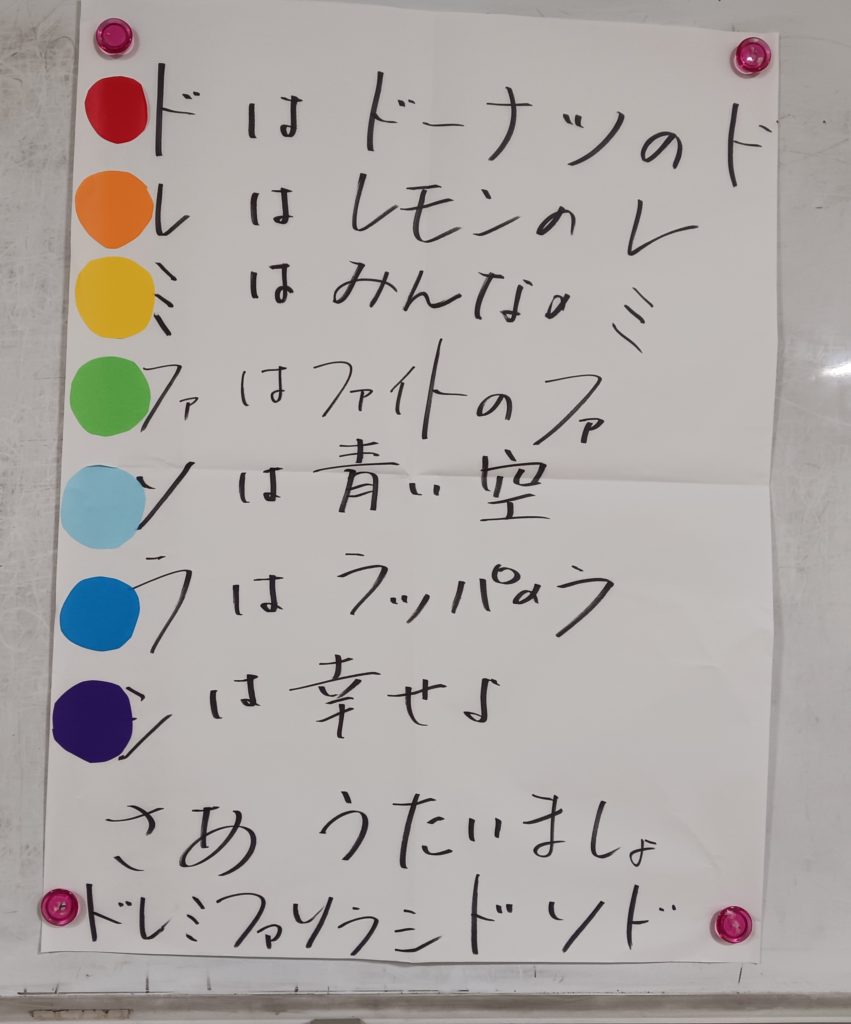 ド は ドーナツのド
レ は レモンのレ
ミ は みんなのミ
ファ は ファイトのファ
ソ は 青い空
ラ は ラッパのラ
シ は 幸せよ
さあ うたいましょ
ドレミファソラシド ソド